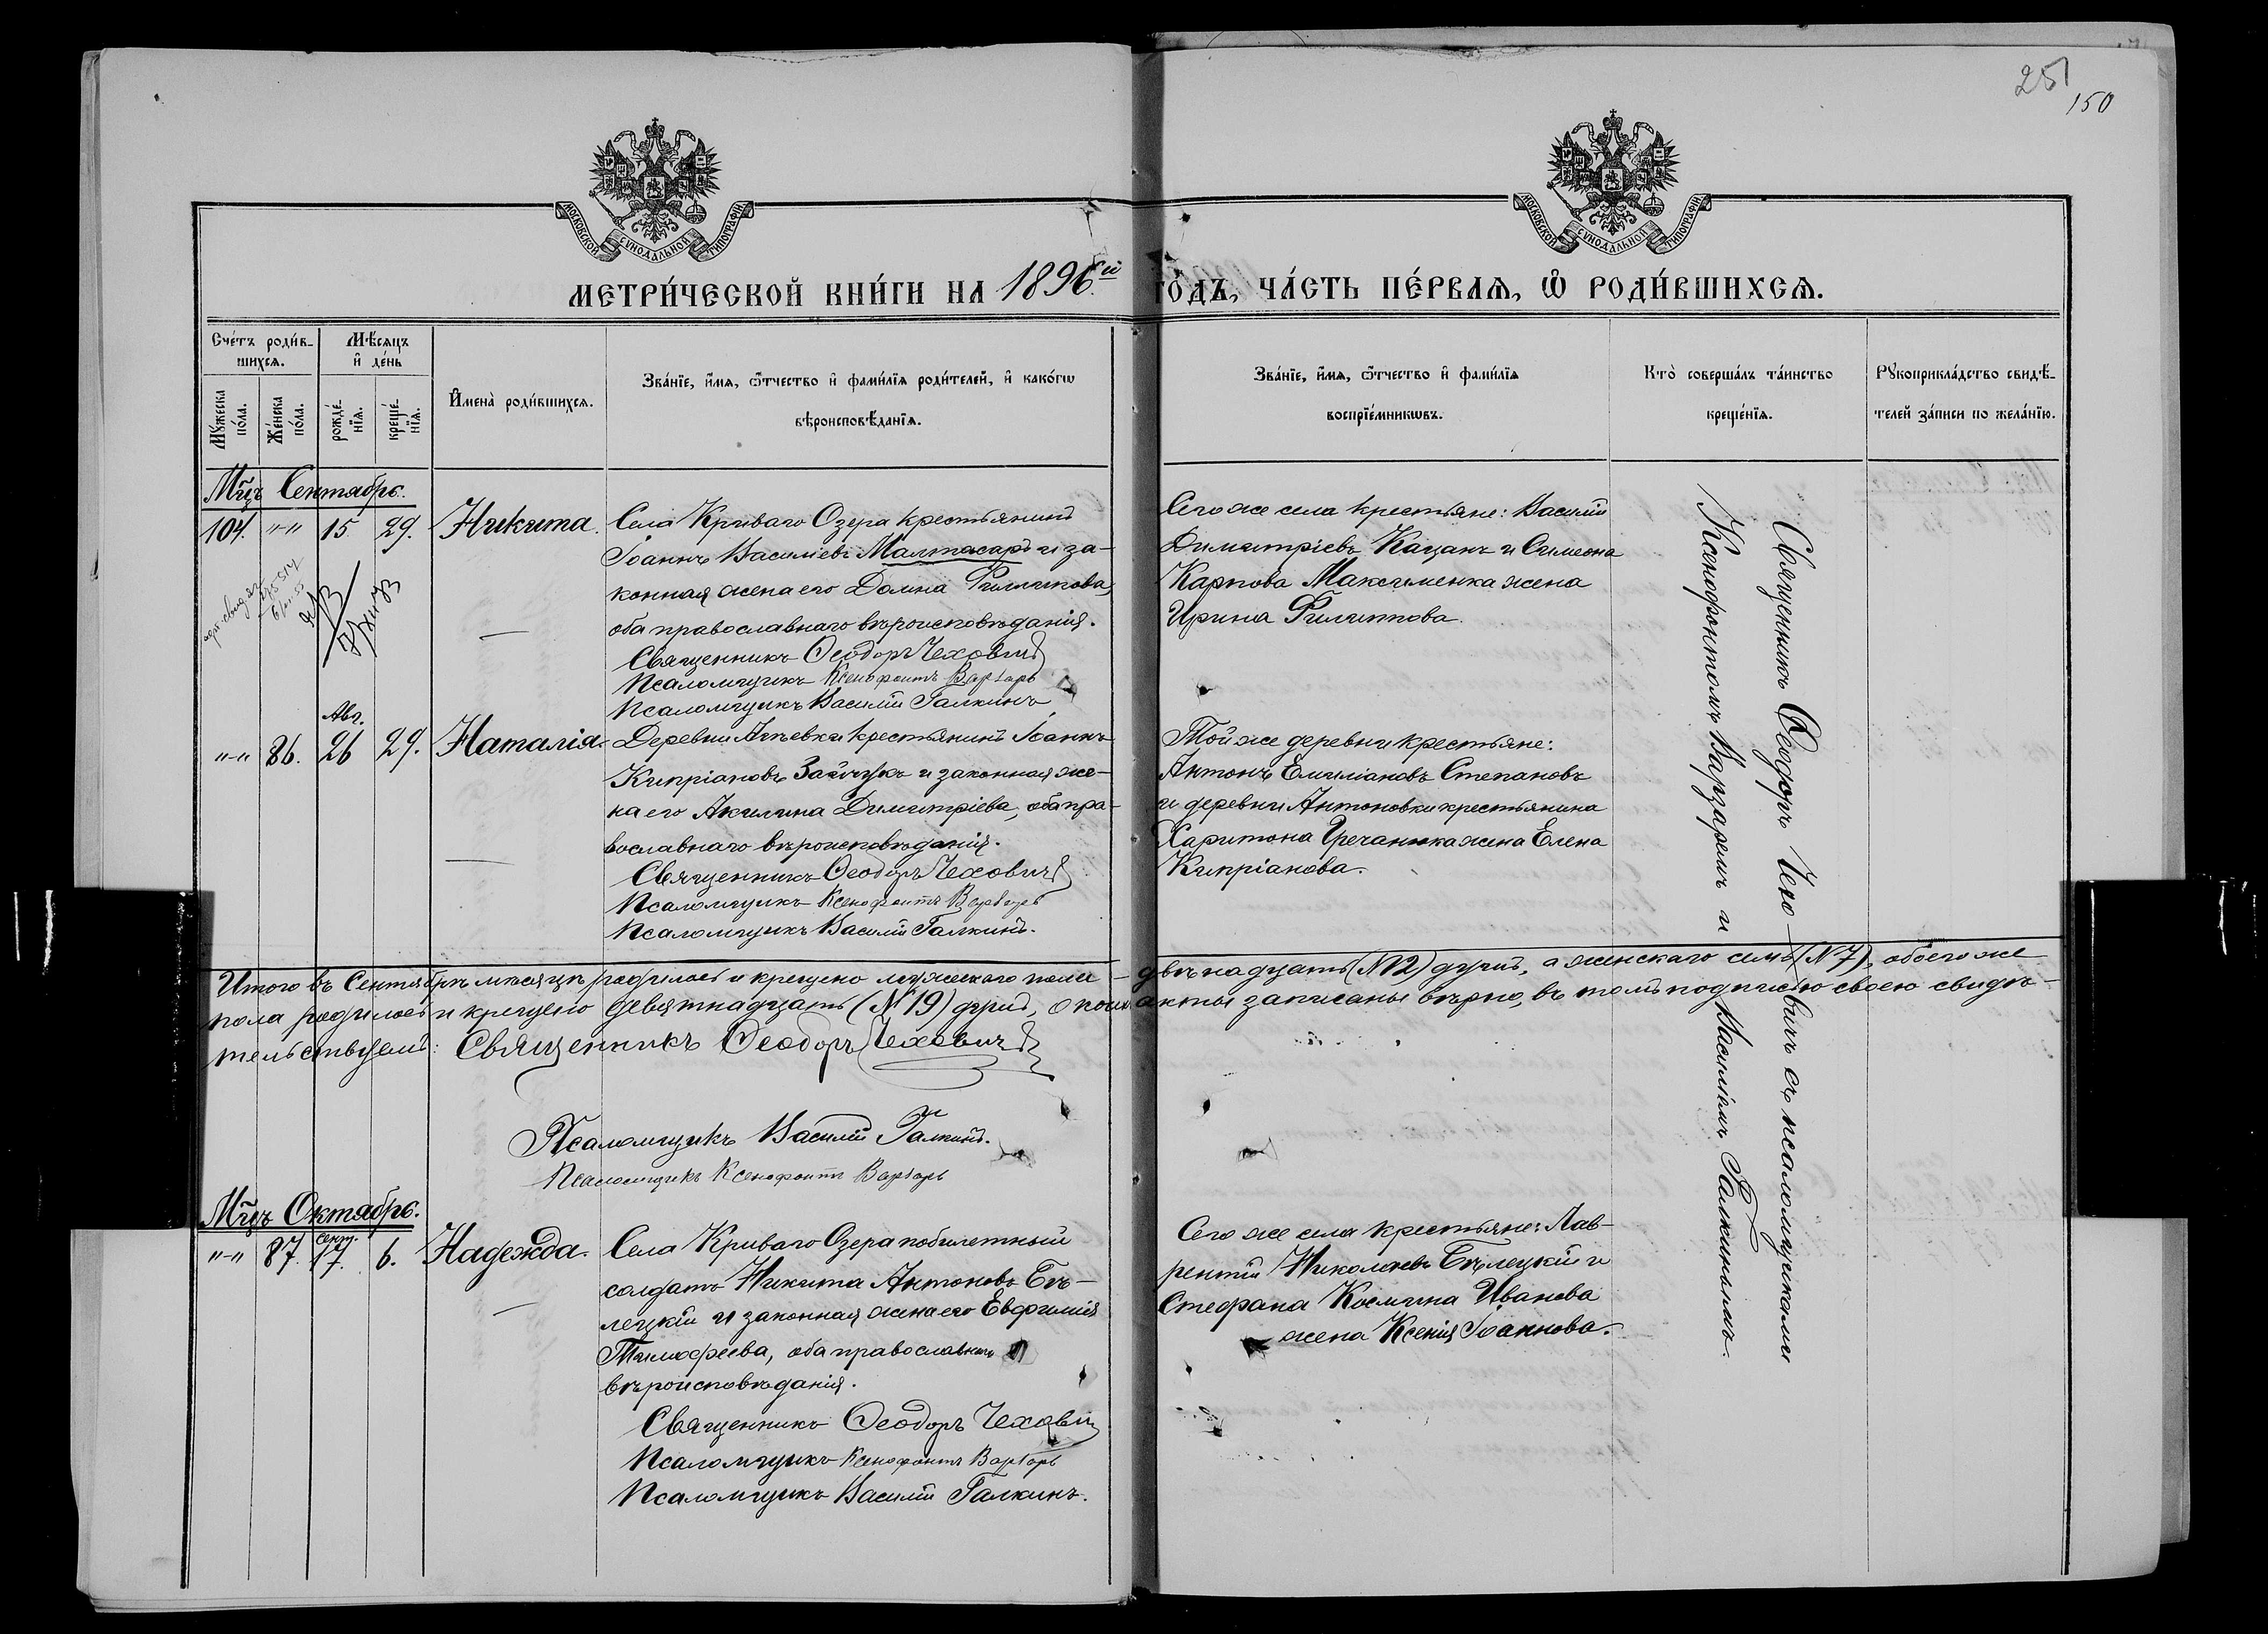 251
150
МОСКОВСКОЙ СѴНОДАЛЬНОЙ ТИПОГРАФІИ
МОСКОВСКОЙ СѴНОДАЛЬНОЙ ТИПОГРАФІИ
МЕТРИ́ЧЕСКОЙ КНИ́ГИ НА 1896.й ГО́ДЪ, ЧА́СТЬ ПЕ́РВАѦ, Ѽ РОДИ́ВШИХСѦ.
Сче́тъ роди́в-
шихсѧ.
Мꙋ́жеска
по́ла.
Же́нска
по́ла.
Мѣ́сѧцъ
и҆ де́нь
рожде́-
нїѧ.
креще́-
нїѧ.
И҆мена̀ роди́вшихсѧ.
Зва́нїе, и҆́мѧ, ѻ҆́тчество и҆ фами́лїѧ роди́телей, и҆ како́гѡ
вѣроисповѣ́данїѧ.
Зва́нїе, и҆́мѧ, ѻ҆́тчество и҆ фами́лїѧ
воспрїе́мникѡвъ.
Кто̀ соверша́лъ та́инство
креще́нїѧ.
Рꙋкоприкла́дство свидѣ́-
телей за́писи по жела́нїю.
Мцъ Сентябрь.
104. "-" 15. 29. Никита. Села Криваго Озера крестьянинъ
Іоаннъ Василіевъ Малтасаръ и за-
конная жена его Домна Филиппова,
оба православнаго вѣроисповѣданія.
Священникъ Ѳеодоръ Чеховичъ
Псаломщикъ Ксенофонтъ Варзаръ
Псаломщикъ Василій Галкинъ
Сего же села крестьяне: Василій
Димитріевъ Кацанъ и Симеона
Карпова Максименка жена
Ирина Филиппова.
"-" 86. Авг. 26 29. Наталія. Деревни крестьянинъ Іоаннъ
Кипріановъ Зайчукъ и законная же-
на его Акилина Димитріева, оба пра-
вославнаго вѣроисповѣданія.
Священникъ Ѳеодоръ Чеховичъ
Псаломщикъ Ксенофонтъ Варзаръ
Псаломщикъ Василій Галкинъ.
Той же деревни крестьяне:
Антонъ Емиліановъ Степановъ
и деревни Антоновки крестьянина
Харитона Гречаника жена Елена
Кипріанова.
Священникъ Ѳеодоръ Чеховичъ съ псаломщиками
Ксенофонтомъ Варзаремъ и Василіемъ Галкинымъ.
Итого въ Сентябрѣ мѣсяцѣ родилось и крещено мужескаго пола – двѣнадцать (№12) душъ, а женскаго семь (№7), обоего же
пола родилось и крещено девятнадцать (№19) душъ, о коихъ акты записаны вѣрно, въ томъ подписью своею свидѣ-
тельствуемъ: Священникъ Ѳеодоръ Чеховичъ
Псаломщикъ Василій Галкинъ.
Псаломщикъ Ксенофонтъ Варзаръ
Мцъ Октябрь.
"-" 87. Сент. 17. 6. Надежда. Села Криваго Озера побилетный
солдатъ Никита Антоновъ Бѣ-
лецкій и законная жена его Евфимія
Тимофеева, оба православнаго
вѣроисповѣданія.
Священникъ Ѳеодоръ Чеховичъ
Псаломщикъ Ксенофонтъ Варзаръ
Псаломщикъ Василій Галкинъ.
Сего же села крестьяне: Лав-
рентій Николаевъ Бѣлецкій и
Стефана Космина Иванова
жена Ксенія Іоаннова.